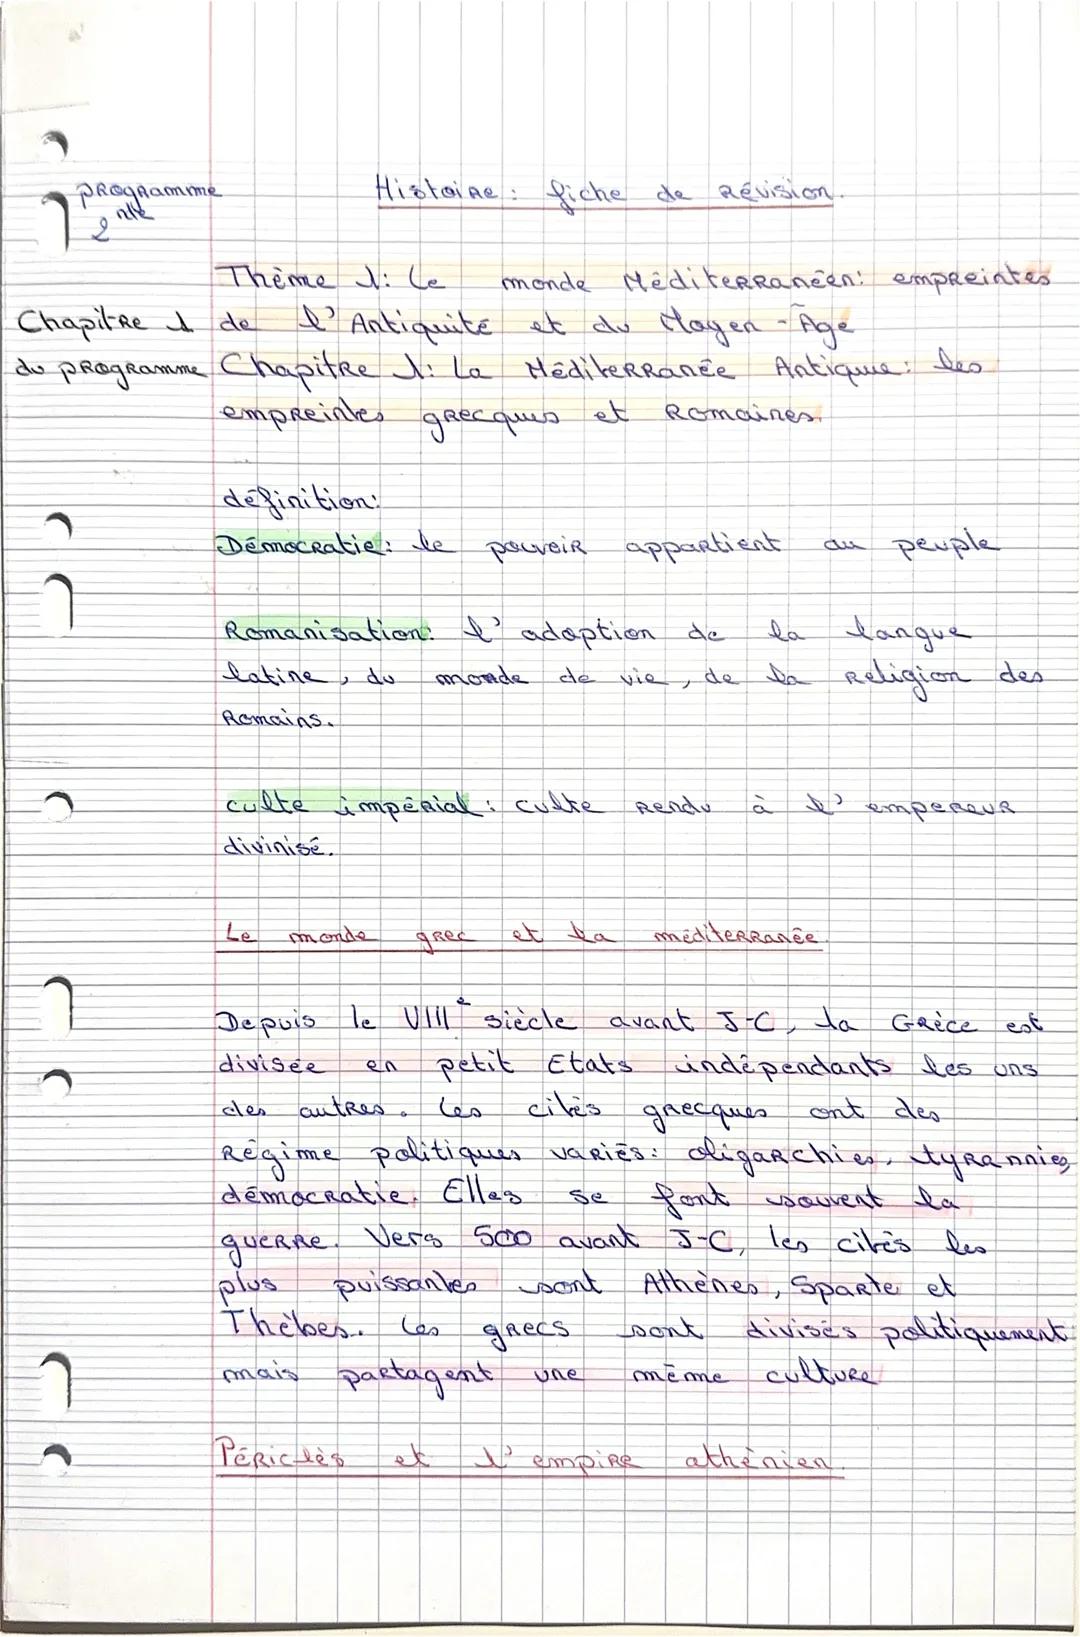 programme
2nde
Histoire : fiche de révision.
Thème 1: Le monde Méditerranéen: empreintes
Chapitre 1
de l'Antiquité et du Moyen-Âge
du programme
Chapitre 1: La Méditerranée Antique: les
empreintes grecques et Romaines.
définition:
Démocratie: le pouvoir appartient au peuple
Romanisation: l'adoption de la langue
latine, du monde de vie, de la religion des
Romains.
culte impérial : culte rendu à l'empereur
divinisé.
Le monde grec et la méditerranée.
Depuis le VIIIe siècle avant J-C, la Grèce est
divisée en petit Etats indépendants les uns
des autres. Les cités grecques ont des
Régime politiques variés: oligarchies, tyrannies,
démocratie. Elles se font souvent la
guerre. Vers 500 avant J-C, les cités les
plus puissantes sont Athènes, Sparte et
Thèbes. Les grecs sont divisés politiquement
mais partagent une même culture
Périclès et l'empire athénien.